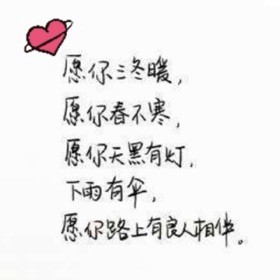 愿你三冬暖，
愿你春不寒，
愿你天黑有灯，
下雨有伞，
愿你路上有良人相伴。